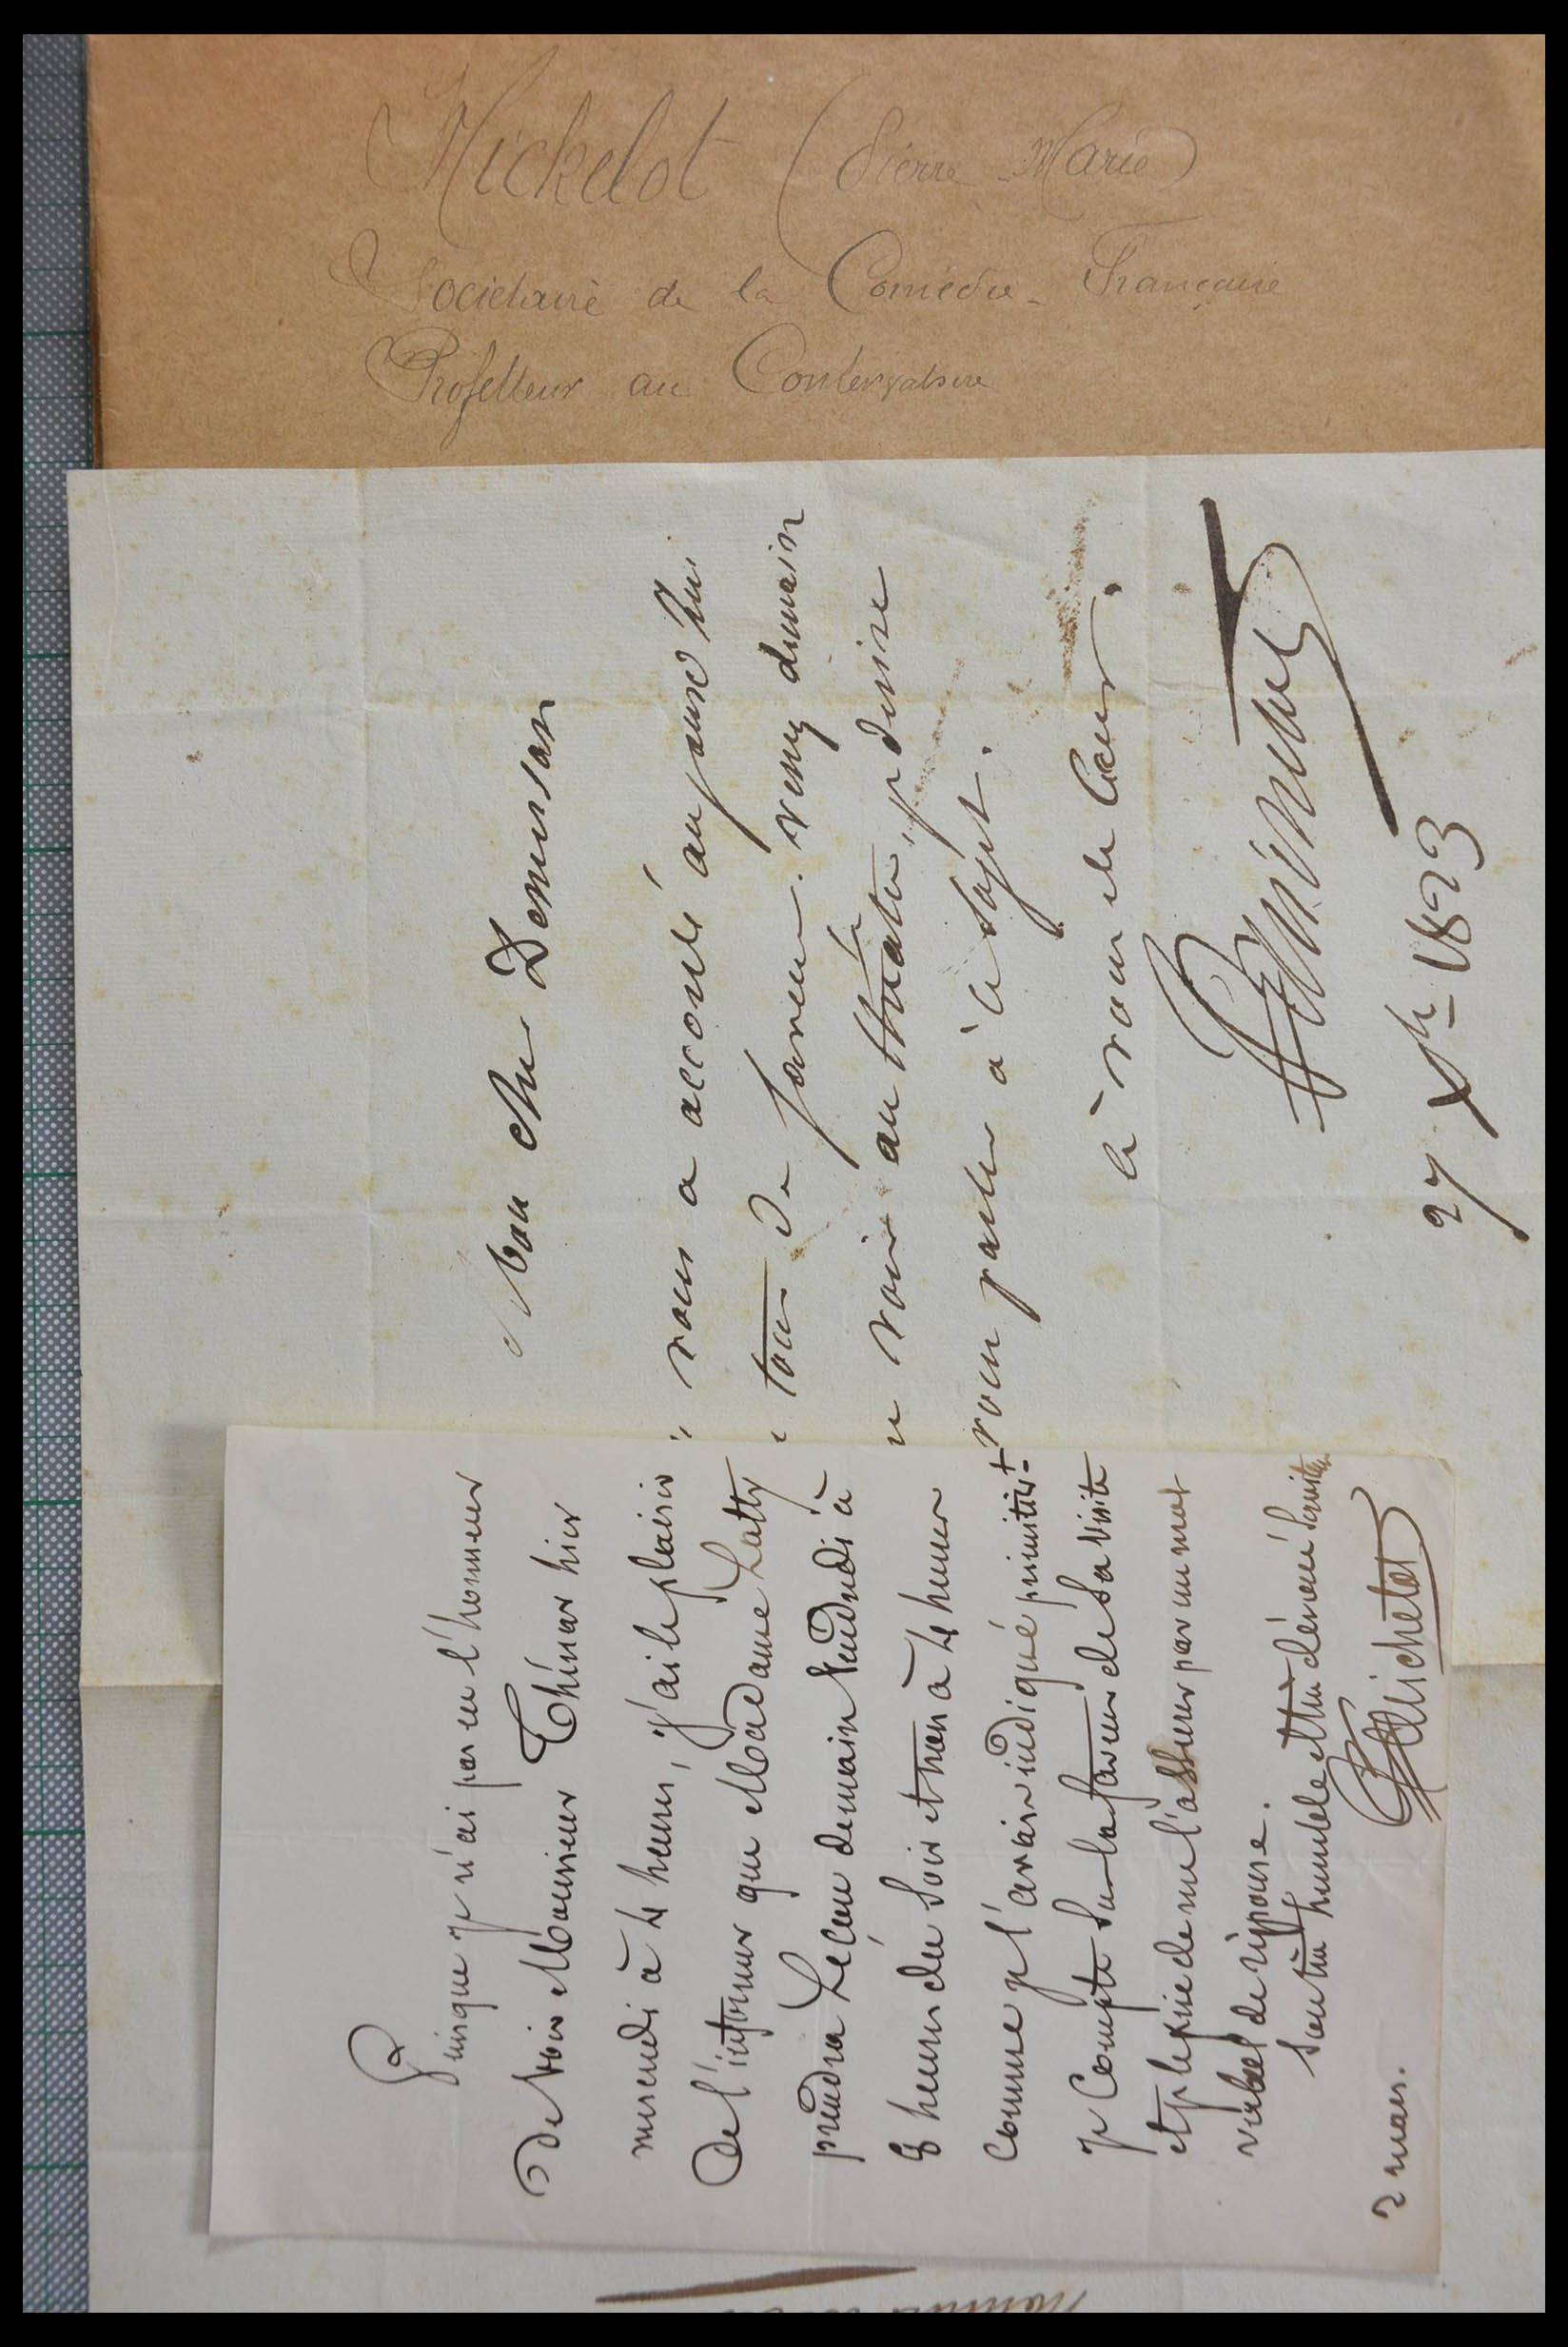 Michelot (Pierre-Marie)
Sociétaire de la Comédie-Française
Professeur au Conservatoire
Mon cher Demersan
vous a accordé aujourd'hui
tour de faveur. venez demain
voir au théâtre, je désire
vous parler à ce sujet.
à vous de Cœur.
27 Xbre 1823
Puisque je n'ai pas eu l'honneur
De voir Monsieur Thénar hier
mercredi à 4 heures, j'ai le plaisir
De l'informer que Madame Latty
prendra Leçon demain Vendredi à
8 heures du Soir et non à 4 heures
Comme je l'avais indiqué primitivt.
je Compte Sur la faveur de Sa Visite
et le prie de me l'assurer par un mot
verbal de réponse.
Son très humble et très dévoué Serviteur
PMichelot
2 mars.